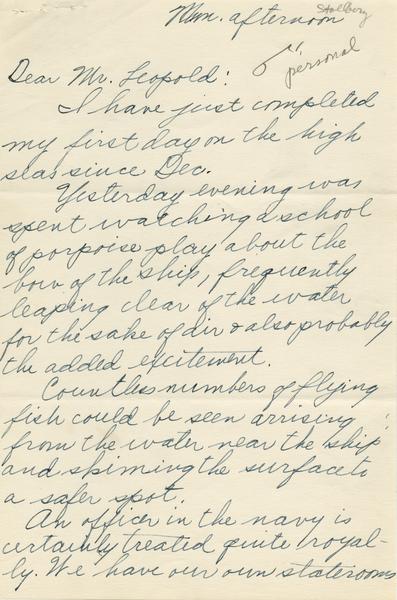 Mon. afternoon
Stollberg
personal
Dear Mr. Leopold:
I have just completed
my first day on the high
seas since Dec.
Yesterday evening was
spent watching a school
of porpoise play about the
bow of the ship, frequently
leaping clear of the water
for the sake of air & also probably
the added excitement.
Countless numbers of flying
fish could be seen arrising
from the water near the ship
and skimming the surface to
a safer spot.
An officer in the navy is
certainly treated quite royal-
ly. We have our own staterooms